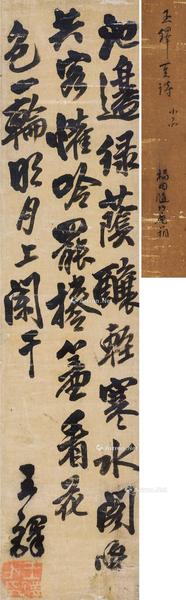 池邊綠蔭釀輕寒水閣
共客懽吟罷捲簾看花
色一輪明月上闌干
王鐸
王鐸 詩 小品
福田